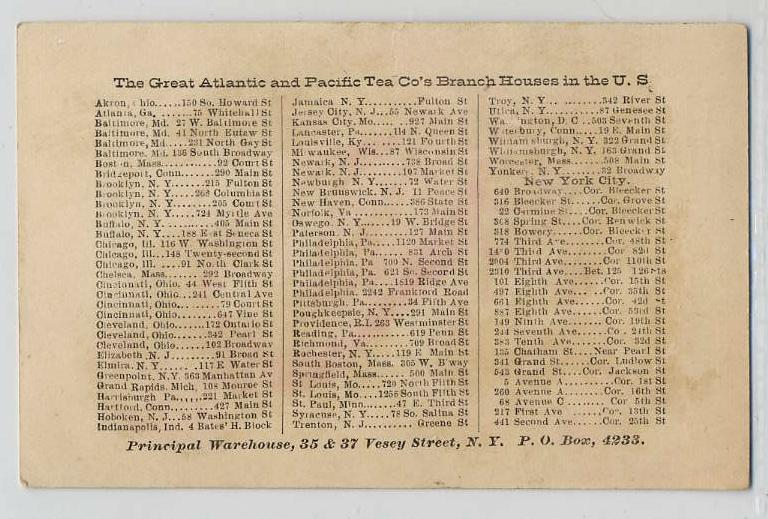 The Great Atlantic and Pacific Tea Co's Branch Houses in the U. S.
Akron, Ohio.....150 So. Howard St
Atlanta, Ga, ...... 75 Whitehall St
Baltimore, Md. 27 W. Baltimore St
Baltimore, Md. 41 North Eutaw St
Baltimore, Md. 231 North Gay St
Baltimore. Md. 136 South Broadway
Boston, Mass..........92 Court St
Bridgeport, Conn.......290 Main St
Brooklyn, N. Y......215 Fulton St
Brooklyn, N. Y....268 Columbia St
Brooklyn, N. Y........205 Court St
Brooklyn, N. Y....724 Myrtle Ave
Buffalo, N. Y..........405 Main St
Buffalo, N. Y.....188 East Seneca St
Chicago, Ill. 116 W. Washington St
Chicago, Ill...148 Twenty-second St
Chicago, Ill. ....91 No. th Clark St
Chelsea, Mass....... 292 Broadway
Cincinnati, Ohio. 44 West Fifth St
Cincinnati, Ohio...241 Central Ave
Cincinnati, Ohio.......79 Court St
Cincinnati, Ohio.......647 Vine St
Cleveland, Ohio.....172 Ontario St
Cleveland, Ohio......342 Pearl St
Cleveland, Ohio.....102 Broadway
Elizabeth, N. J.........91 Broad St
Elmira, N. Y.......117 E Water St
Greenpoint, N.Y. 563 Manhattan Av
Grand Rapids. Mich. 108 Monroe St
Harrisburgh Pa......221 Market St
Hartford, Conn........427 Main St
Hoboken, N. J...58 Washington St
Indianapolis, Ind. 4 Bates' H. Block
Jamaica N. Y...........Fulton St
Jersey City, N. J...55 Newark Ave
Kansas City, Mo.......927 Main St
Lancaster, Pa.....114 N. Queen St
Louisville, Ky......121 Fourth St
Milwaukee, Wis...87 Wisconsin St
Newark, N. J.........738 Broad St
Newark, N. J........107 Market St
Newburgh N. Y.......72 Water St
New Brunswick. N. J. 11 Peace St
New Haven, Conn.....386 State St
Norfolk, Va ...........173 Main St
Oswego. N. Y.....19 W. Bridge St
Paterson. N. J........127 Main St
Philadelphia, Pa....1120 Market St
Philadelphia, Pa...... 831 Arch St
Philadelphia, Pa 700 N. Second St
Philadelphia, Pa. 621 So. Second St
Philadelphia, Pa....1819 Ridge Ave
Philadelphia. 2242 Frankford Road
Pittsburgh. Pa........34 Fifth Ave
Poughkeepsie, N. Y....291 Main St
Providence, R.I. 263 Westminster St
Reading, Pa...........619 Penn St
Richmond, Va........709 Broad St
Rochester, N. Y.....119 E Main St
South Boston, Mass. 305 W. B'way
Springfield, Mass......500 Main St
St Louis, Mo....720 North Fifth St
St. Louis, Mo...1256 South Fifth St
St. Paul, Minn......47 E. Third St
Syracuse, N. Y.....78 So. Salina St
Trenton, N. J..........Greene St
Troy, N. Y............342 River St
Utica, N. Y..........87 Genesee St
Washington, D. C...503 Seventh St
Waterbury, Conn....19 E. Main St
Williamsburgh, N. Y. 322 Grand St
Williamsburgh, N. Y. 163 Grand St
Worcester, Mass.......508 Main St
Yonkers, N. Y.........32 Broadway
New York City.
640 Broadway.....Cor. Bleecker St
316 Bleecker St......Cor. Grove St
22 Carmine St....Cor. Bleecker St
308 Spring St....Cor. Renwick St
318 Bowery......Cor. Bleecker St
774 Third Ave........Cor. 48th St
Third Ave........Cor 82d St
2004 Third Ave......Cor 110th St
2310 Third Ave....Bet. 125 126 sts
101 Eighth Ave......Cor. 15th St
497 Eighth Ave......Cor. 35th St
661 Eighth Ave......Cor. 42d St
887 Eighth Ave......Cor. 53rd St
149 Ninth Ave......Cor. 19th St
244 Seventh Ave.....Co. 24th St
383 Tenth Ave.......Cor. 32d St
135 Chatham St....Near Pearl St
341 Grand St......Cor. Ludlow St
543 Grand St....Cor. Jackson St
5 Avenue A..........Cor. 1st St
260 Avenue A........Cor. 16th St
68 Avenue C ........Cor 5th St
217 First Ave ......Cor. 13th St
441 Second Ave......Cor. 25th St
Principal Warehouse, 35 & 37 Vesey Street, N. Y. P. O. Box, 4233.